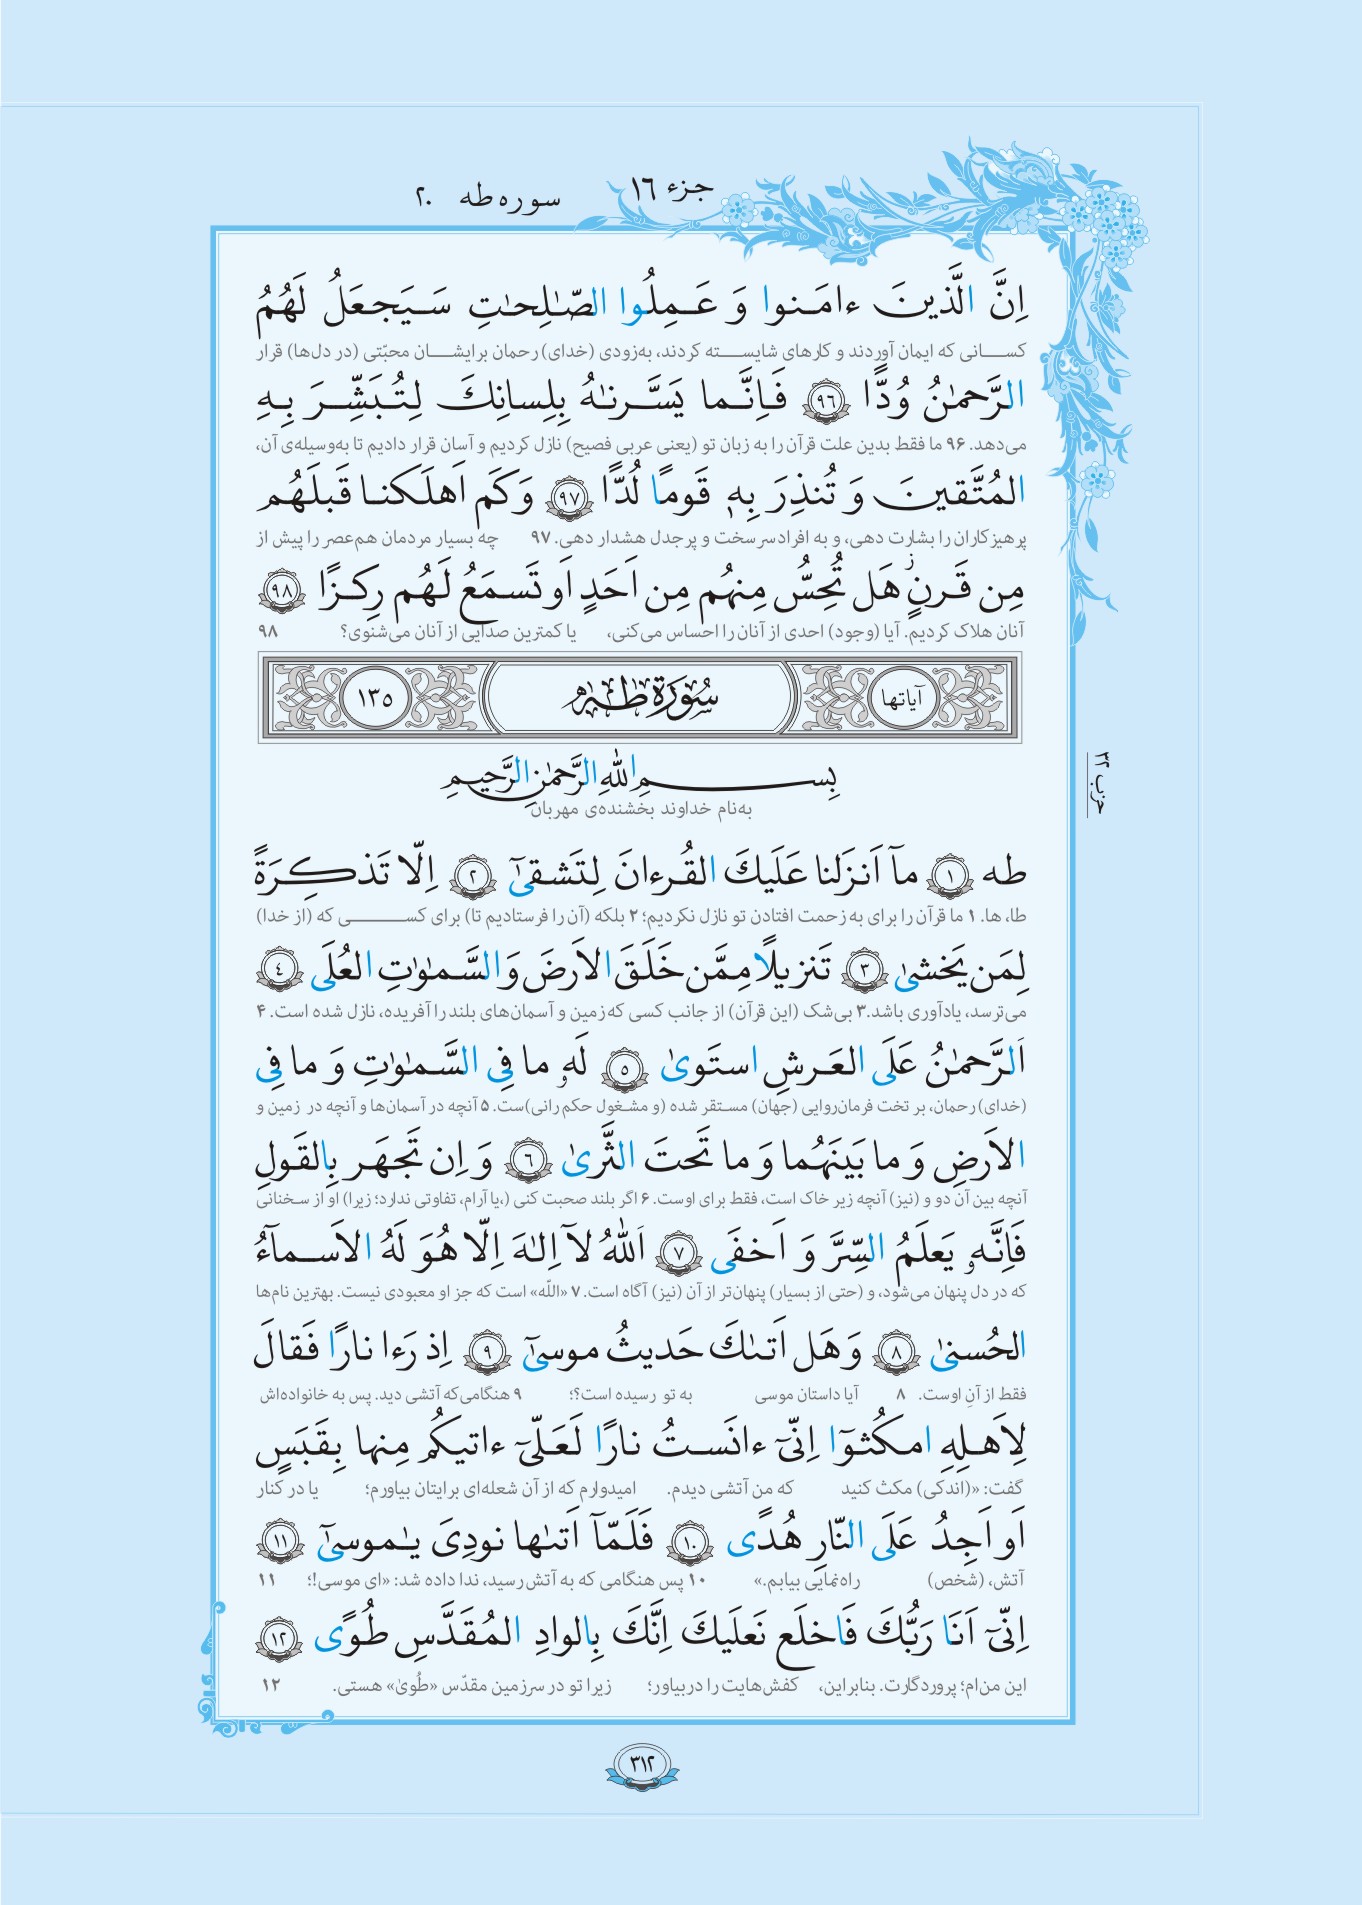 جزء ١٦
سوره طه ٢٠
اِنَّ الَّذينَ ءامَـنوا وَ عَـمِلُوا الصّـٰلِحـٰتِ سَـيَجعَلُ لَهُمُ
کسانی که ایمان آوردند و کارهای شایسته کردند، به‌زودی (خدای) رحمان برایشان محبّتی (در دل‌ها) قرار
الرَّحمـٰنُ وُدًّا ٩٦ فَـاِنَّـما يَسَّـرنـٰهُ بِلِسانِكَ لِتُبَشِّـرَ بِـهِ
می‌دهد. ۹۶ ما فقط بدین علت قرآن را به زبان تو (یعنی عربی فصیح) نازل کردیم و آسان قرار دادیم تا به‌وسیله‌ی آن،
المُتَّقينَ وَ تُنذِرَ بِهٖ قَومًا لُدًّا ٩٧ وَ كَم اَهلَكنـا قَبلَهُم
پرهیزکاران را بشارت دهی، و به افراد سرسخت و پرجدل هشدار دهی. ۹۷ چه بسیار مردمان هم‌عصر را پیش از
مِن قَـرنٍ هَل تُحِسُّ مِنهُم مِن اَحَدٍ اَو تَسمَعُ لَهُم رِكـزًا ٩٨
آنان هلاک کردیم. آیا (وجود) احدی از آنان را احساس می‌کنی، یا کمترین صدایی از آنان می‌شنوی؟ ۹۸
آياتها سُورَةُ طٰهٰ ١٣٥
بِسـمِ اللّٰهِ الرَّحمـٰنِ الرَّحيـمِ
به‌نام خداوند بخشنده‌ی مهربان
حزب ۳۲
طه ١ مآ اَنزَلنا عَلَيكَ القُرءانَ لِتَشقىٰٓ ٢ اِلّا تَذكِـرَةً
طا، ها. ۱ ما قرآن را برای به زحمت افتادن تو نازل نکردیم؛ ۲ بلکه (آن را فرستادیم تا) برای کسی که (از خدا)
لِمَن يَخشىٰ ٣ تَنزيلًا مِمَّن خَلَقَ الاَرضَ وَ السَّمـٰوٰتِ العُلَى ٤
می‌ترسد، یادآوری باشد. ۳ بی‌شک (این قرآن) از جانب کسی که زمین و آسمان‌های بلند را آفریده، نازل شده است. ۴
اَلرَّحمـٰنُ عَلَى العَـرشِ استَوىٰ ٥ لَهٗ ما فِي السَّـمـٰوٰتِ وَ ما فِي
(خدای) رحمان، بر تخت فرمان‌روایی (جهان) مستقر شده (و مشغول حکم رانی)ست. ۵ آنچه در آسمان‌ها و آنچه در زمین و
الاَرضِ وَ ما بَينَهُما وَ ما تَحتَ الثَّرىٰ ٦ وَ اِن تَجهَـر بِالقَولِ
آنچه بین آن دو و (نیز) آنچه زیر خاک است، فقط برای اوست. ۶ اگر بلند صحبت کنی (،یا آرام، تفاوتی ندارد؛ زیرا) او از سخنانی
فَاِنَّـهٗ يَعلَمُ السِّرَّ وَ اَخفَى ٧ اَللّٰهُ لآ اِلـٰهَ اِلّا هُوَ لَهُ الاَسـمآءُ
که در دل پنهان می‌شود، و (حتی از بسیار) پنهان‌تر از آن (نیز) آگاه است. ۷ «اللّه» است که جز او معبودی نیست. بهترین نام‌ها
الحُسنىٰ ٨ وَ هَل اَتـىٰكَ حَديثُ موسىٰٓ ٩ اِذ رَءا نارًا فَقالَ
فقط از آنِ اوست. ۸ آیا داستان موسی به تو رسیده است؟؛ ۹ هنگامی‌که آتشی دید. پس به خانواده‌اش
لِاَهـلِهِ امـكُثوٓا اِنّىٓ ءانَسـتُ نارًا لَعَـلّىٓ ءاتيكُم مِنها بِقَبَسٍ
گفت: «(اندکی) مکث کنید که من آتشی دیدم. امیدوارم که از آن شعله‌ای برایتان بیاورم؛ یا در کنار
اَو اَجِدُ عَلَى النّارِ هُدًى ١٠ فَلَمّآ اَتىٰها نودِىَ يـٰموسىٰٓ ١١
آتش، (شخص) راه‌نمایی بیابم.» ۱۰ پس هنگامی که به آتش رسید، ندا داده شد: «ای موسی!؛ ۱۱
اِنّىٓ اَنَا رَبُّكَ فَاخلَع نَعلَيكَ اِنَّكَ بِالوادِ المُقَدَّسِ طُوًى ١٢
این من‌ام؛ پروردگارت. بنابراین، کفش‌هایت را دربیاور؛ زیرا تو در سرزمین مقدّس «طُوىٰ» هستی. ۱۲
٣١٢